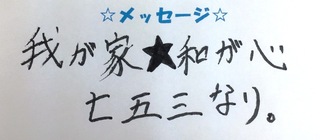 ☆メッセージ☆
我が家★和が心
七五三なり。